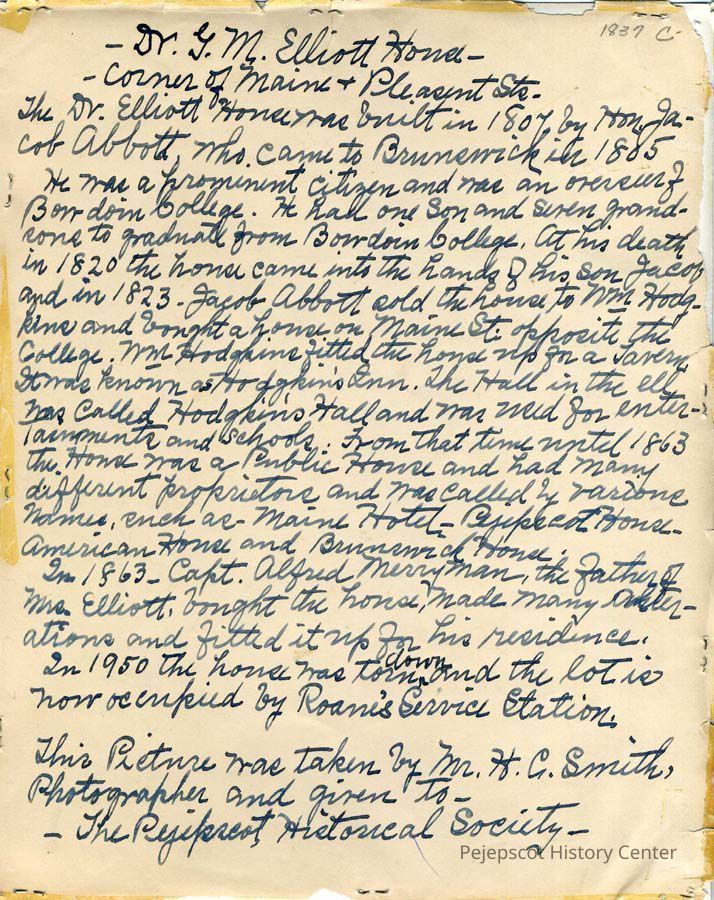 1837 C-
- Dr. G. M. Elliott House -
- Corner of Maine + Pleasent Sts.
The Dr. Elliott House was built in 1807 by Hon. Ja-
cob Abbott, who came to Brunswick in 1805
He was a prominent citizen and was an overseer of
Bowdoin College. He had one son and seven grand-
sons to graduate from Bowdoin College. At his death
in 1820 the house came into the hands of his son Jacob
and in 1823 - Jacob Abbott sold the house to Wm Hodg-
kins and bought a house on Maine St. opposite the
College. Wm Hodgkins fitted the house up for a Tavern
It was known as Hodgkin's Inn. The Hall in the ell
was called Hodgkin's Hall and was used for enter-
tainments and schools. From that time until 1863
the House was a Public House and had many
different proprietors and was called by various
names, such as - Maine Hotel - Pejepscot House -
American House and Brunswick House.
In 1863 - Capt. Alfred Merryman, the father of
Mrs. Elliott, bought the house, made many Alter-
ations and fitted it up for his residence.
In 1950 the house was torn down and the lot is
now occupied by Roane's Service Station.
This Picture was taken by Mr. H. C. Smith,
Photographer and given to -
- The Pejepscot Historical Society -
Pejepscot History Center